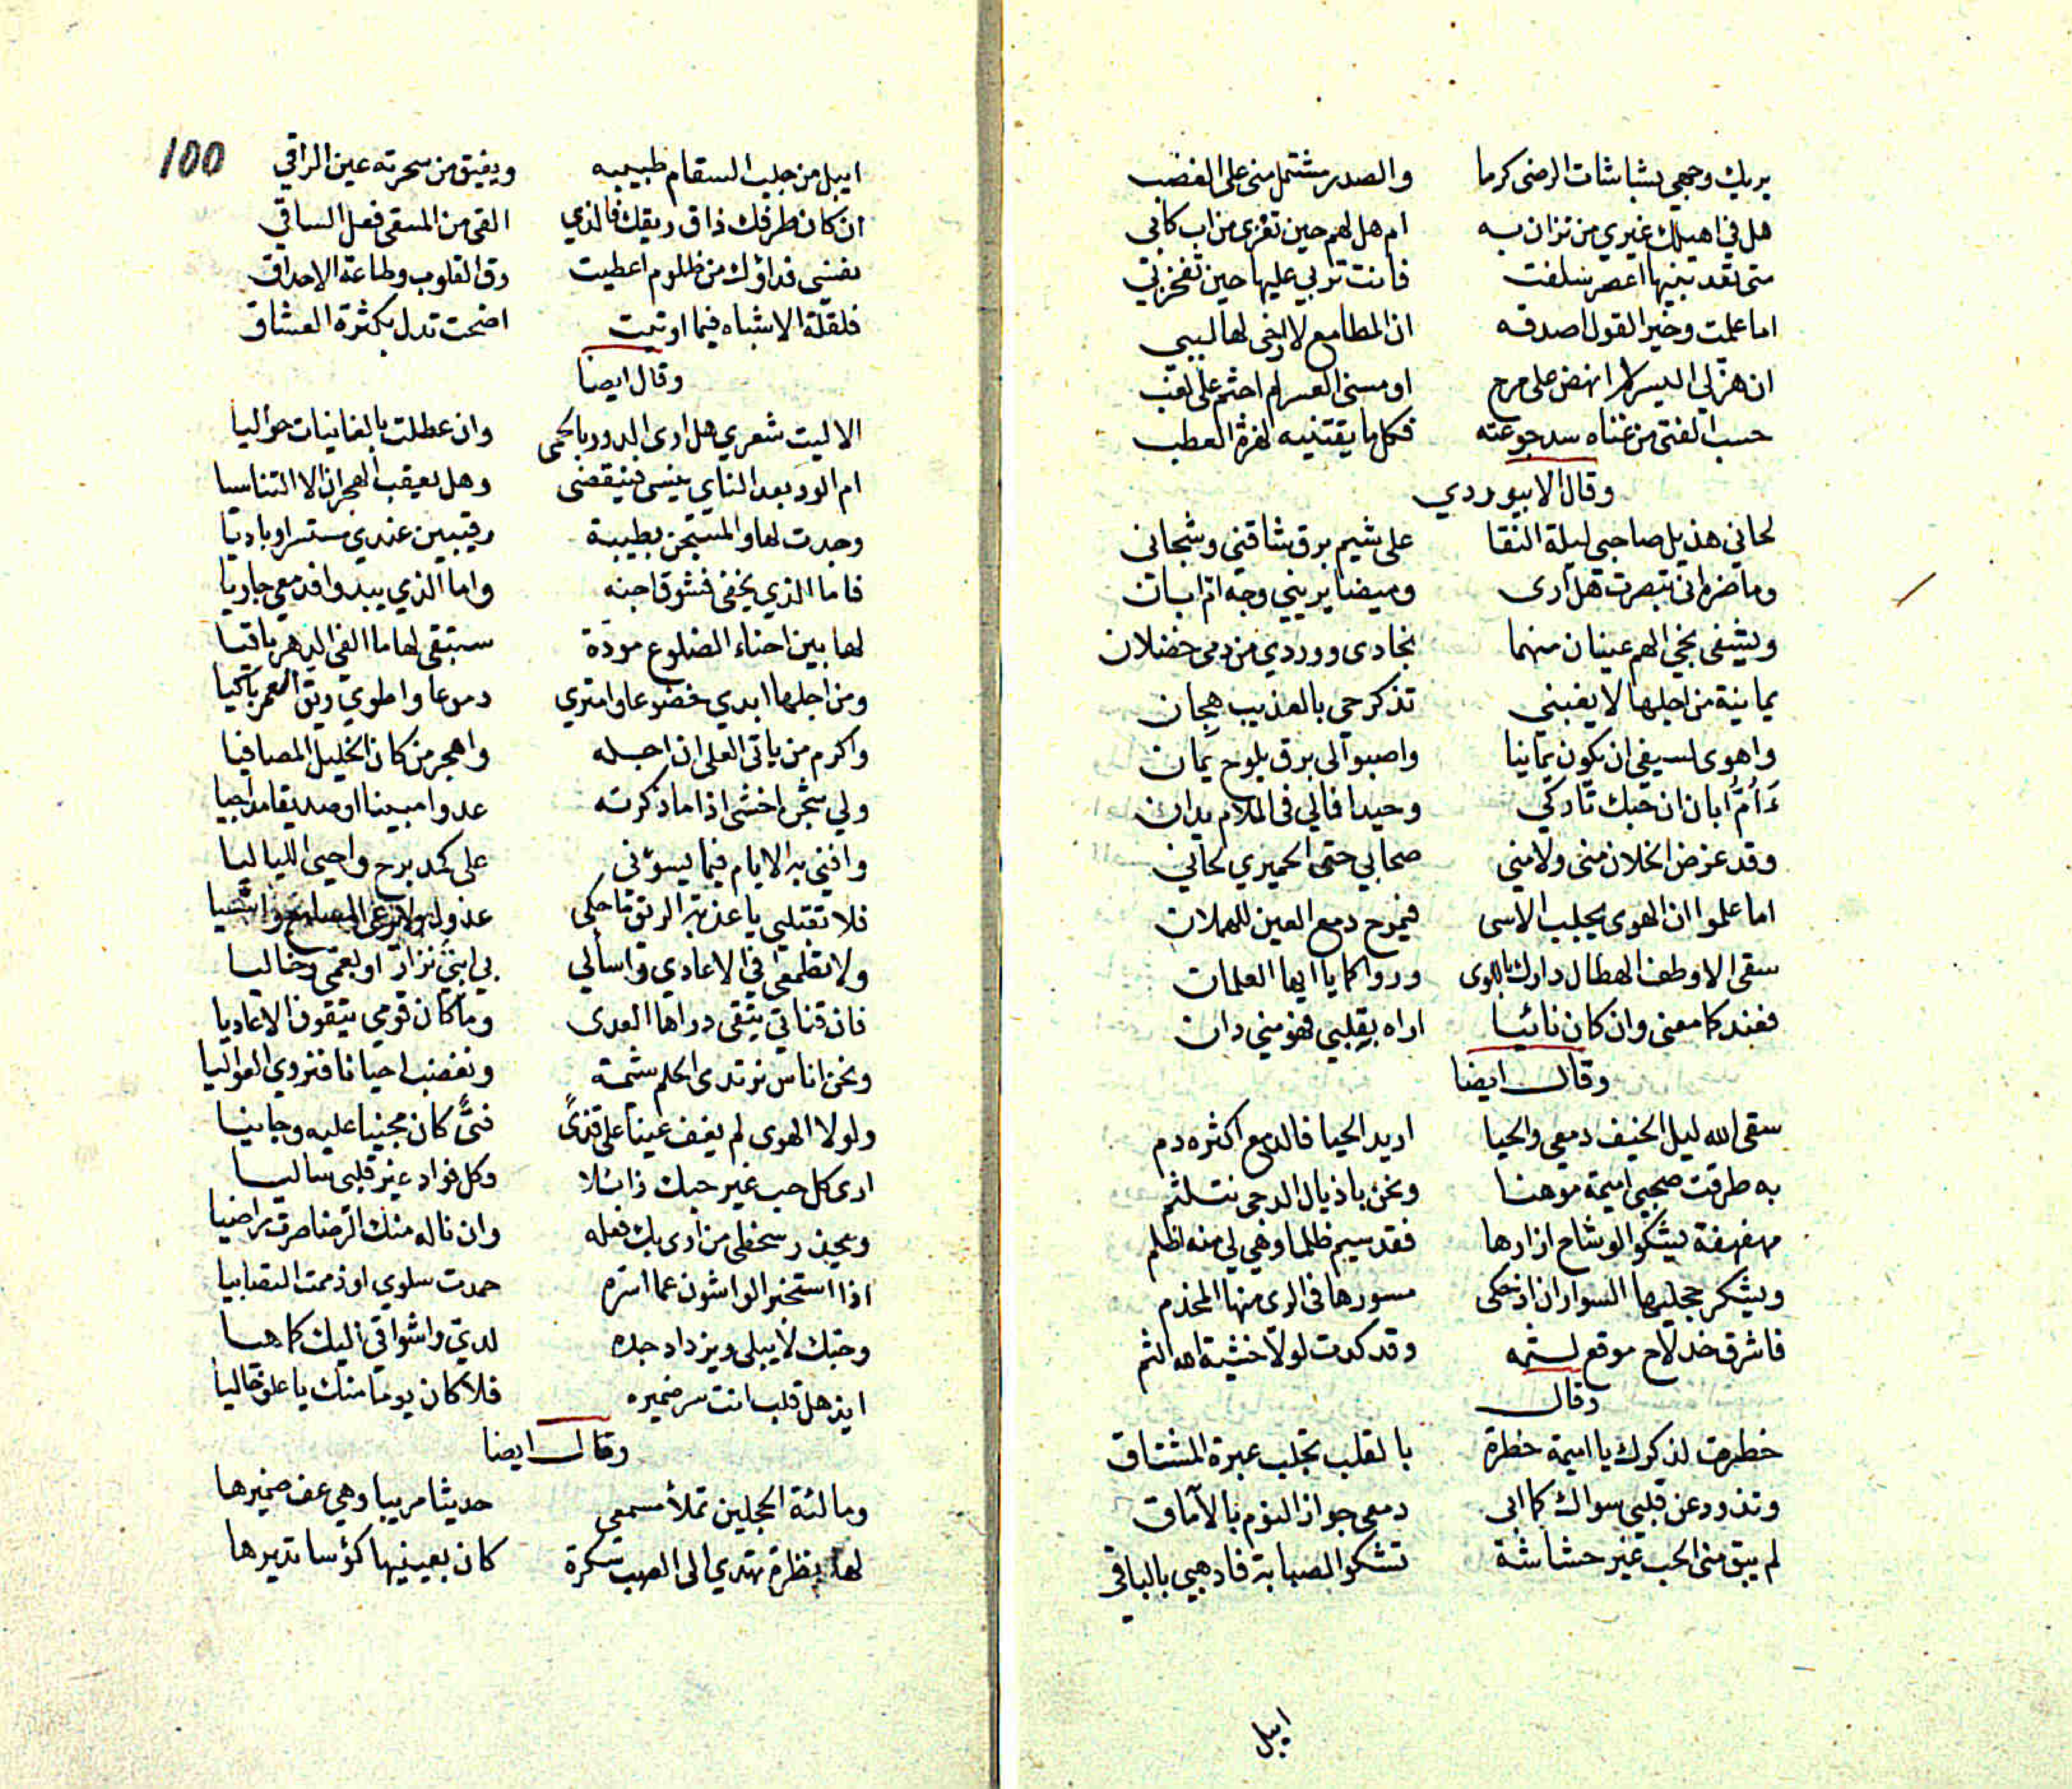 يريك وجهي بشاشات الرضى كرما والصدر مشتمل منى على الغضب
هل في اهيلك غيري من تزان به ام هل لهم حين تعزى من اب كابي
متى تعد بنيها اعصر سلفت فانت تربي عليها حين تفخر بي
اما علمت وخير القول اصدقه ان المطامع لا ارخى لها لببي
ان هز لي اليسر لم انهض على مرح او مسنى العسر لم اجثم على لغب
حسب الفتى من غناه سد جوعته فكل ما يقتنيه الفرة العطب
وقال الابيوردي
لحاني هذيل صاحبي ليلة النقا على شيم برق شاقني وشجاني
وما ضره اني تبصرت هل ارى وميضا يريني وجه ام ابان
ويشفى نجي الهم عينان منهما نجادى ووردي من دمى خضلان
يمانية من اجلها لا يغبني تذكر حى بالعذيب هجان
واهوى لسيفى ان يكون يمانيا واصبو الى برق يلوح يمان
ءأم ابان ان حبك تاركي وحيدا فمالي فى الملام يدان
وقد عرض الخلان منى ولامني صحابي حتى الحميري لحاني
اما علموا ان الهوى يجلب الاسى فيموج دمع العين للهملان
سقى الاوطف الهطال دارك باللوى ورواكما يا ايها العلمان
فعندكما مغنى وان كان نائيا اراه بقلبي فهو مني دان
وقال ايضا
سقى الله ليل الخيف دمعي والحيا اريد الحيا فالدمع اكثره دم
به طرقت صحبي اميمة موهنا ونحن باذيال الدجى نتلثم
مهفهفة يشكو الوشاح ازارها فقد سيم ظلما وهي لي منه اظلم
ويشكر حجليها السواران اذ حكى مسورها فى الرى منها المخدم
فاشرق خد لاح موقع لثمه وقد كدت لولا خشية الله الثم
وقال
خطرت لذكرك يا اميمة خطرة بالقلب تجلب عبرة المشتاق
وتذود عن قلبي سواك كما ابى دمعي جواز النوم بالآماق
لم يبق منى الحب غير حشاشة تشكو الصبابة فاذهبي بالباقى
ايبل
100
ايبل من جلب السقام طبيبه ويفيق من سحرته عين الراقي
ان كان طرفك ذاق ريقك فالذي القى من المسقى فعل الساقي
نفسي فداؤك من ظلوم اعطيت رق القلوب وطاعة الاحداق
فلقلة الاشباه فيما اوتيت اضحت تدل بكثرة العشاق
وقال ايضا
الا ليت شعري هل ارى الدور بالحمى وان عطلت بالغانيات حواليا
ام الود بعد النأي ينسى فينقضى وهل يعقب الهجران الا التناسيا
وجدت لها والمستجن بطيبة رقيبين عندي مستسرا وباديا
فاما الذي يخفى فشوق اجنه واما الذي يبدو فدمعي جاريا
لها بين احناء الضلوع مودة ستبقى لها ما الفي الدهر باقيا
ومن اجلها ابدي خضوعا وامتري دموعا واطوي ريق العمر باكيا
واكرم من ياتى العلى ان اجله واهجر من كان الخليل المصافيا
ولي شجن اخشى اذا ما ذكرته عدوا مبينا او صديقا مداجيا
وافني به الايام فيما يسوؤنى على كمد برح واحيى اللياليا
فلا تقتليني يا عذبة الريق ما حكى
ولا تطمعى فيّ الاعادي واسألي بي ابني نزار او بعمى وخاليا
فان قناتي يتقى دراها العدى وما كان قومي يتقون الاعاديا
ونحن اناس نرتدى الحلم شيمة ونغضب احيانا فنروي العواليا
ولولا الهوى لم يغف عينا على قذى فتًى كان مجنيا عليه وجانيا
ارى كل حب غير حبك زائلا وكل فواد غير قلبى ساليا
ويحذر سخطى من ارى بك فعله وان ناله منك الرضا صرت راضيا
اذا استخبر الواشون عما اسره حمدت سلوي او ذممت التصابيا
وحبك لا يبلى ويزداد جده لديّ واشواقي اليك كما هيا
ايذهل قلب انت سر ضميره فلا كان يوما منك يا علو خاليا
وقال ايضا
ومالئة الحجلين تملأ مسمعي حديثا مريبا وهي عف ضميرها
لها نظرة تهدي الى الصب سكرة كان بعينيها كؤسا تديرها